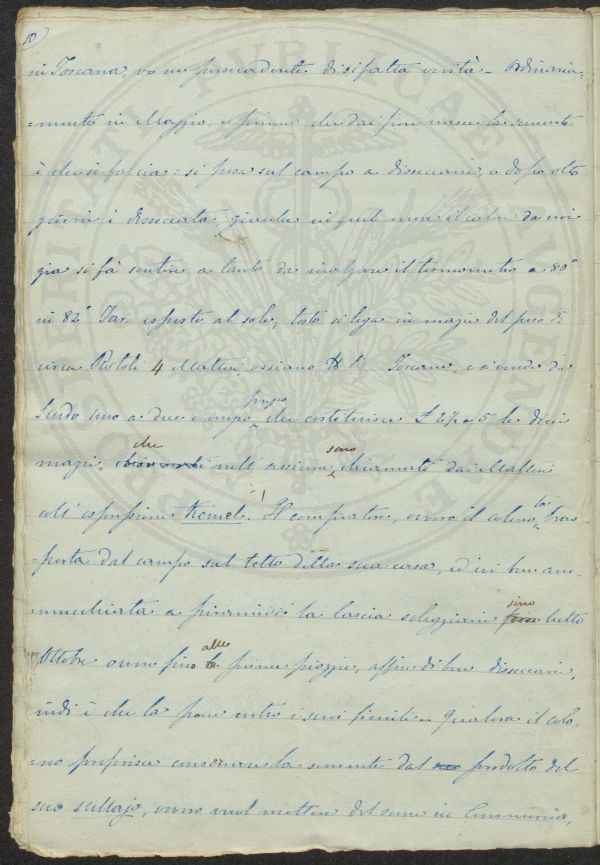 10
in Toscana, va ne persuadente di sifatta verità - Ordinaria-
=mente in Maggio, e prima che dai fiori nasca la semente
è che si falcia: si posa sul campo a disseccarsi, e dopo otto
giorni è disseccata, giacche in quel mese il calor da noi
gia si fà sentire a tanto da inalzare il termometro a 80°
in 82° Far. esposto al sole, tosto si lega in mazzi del peso di
circa Rotoli 4 Maltesi, ossiano Toscane, e si vende da
Scudo uno a due e mezzo che costituisce £ 2½ a 5 le dieci
prezzo
mazzi, che nell' assieme sono chiamati dai Maltesi
coll' espressione Kemel. Il compratore, ovvero il colono la tras-
=porta dal campo sul tetto della sua casa, ed ivi ben am-
=mucchiata a piramidi la lascia soleggiare sino tutto
Ottobre ovvero fino alle prime piogge, affine di ben disseccarsi,
indi è che la pone entro i suoi fienili - Qualora il colo-
=no preferisce conservare la semente dal prodotto del
suo sullajo, ovvero vuol mettere del seme in Commercio,